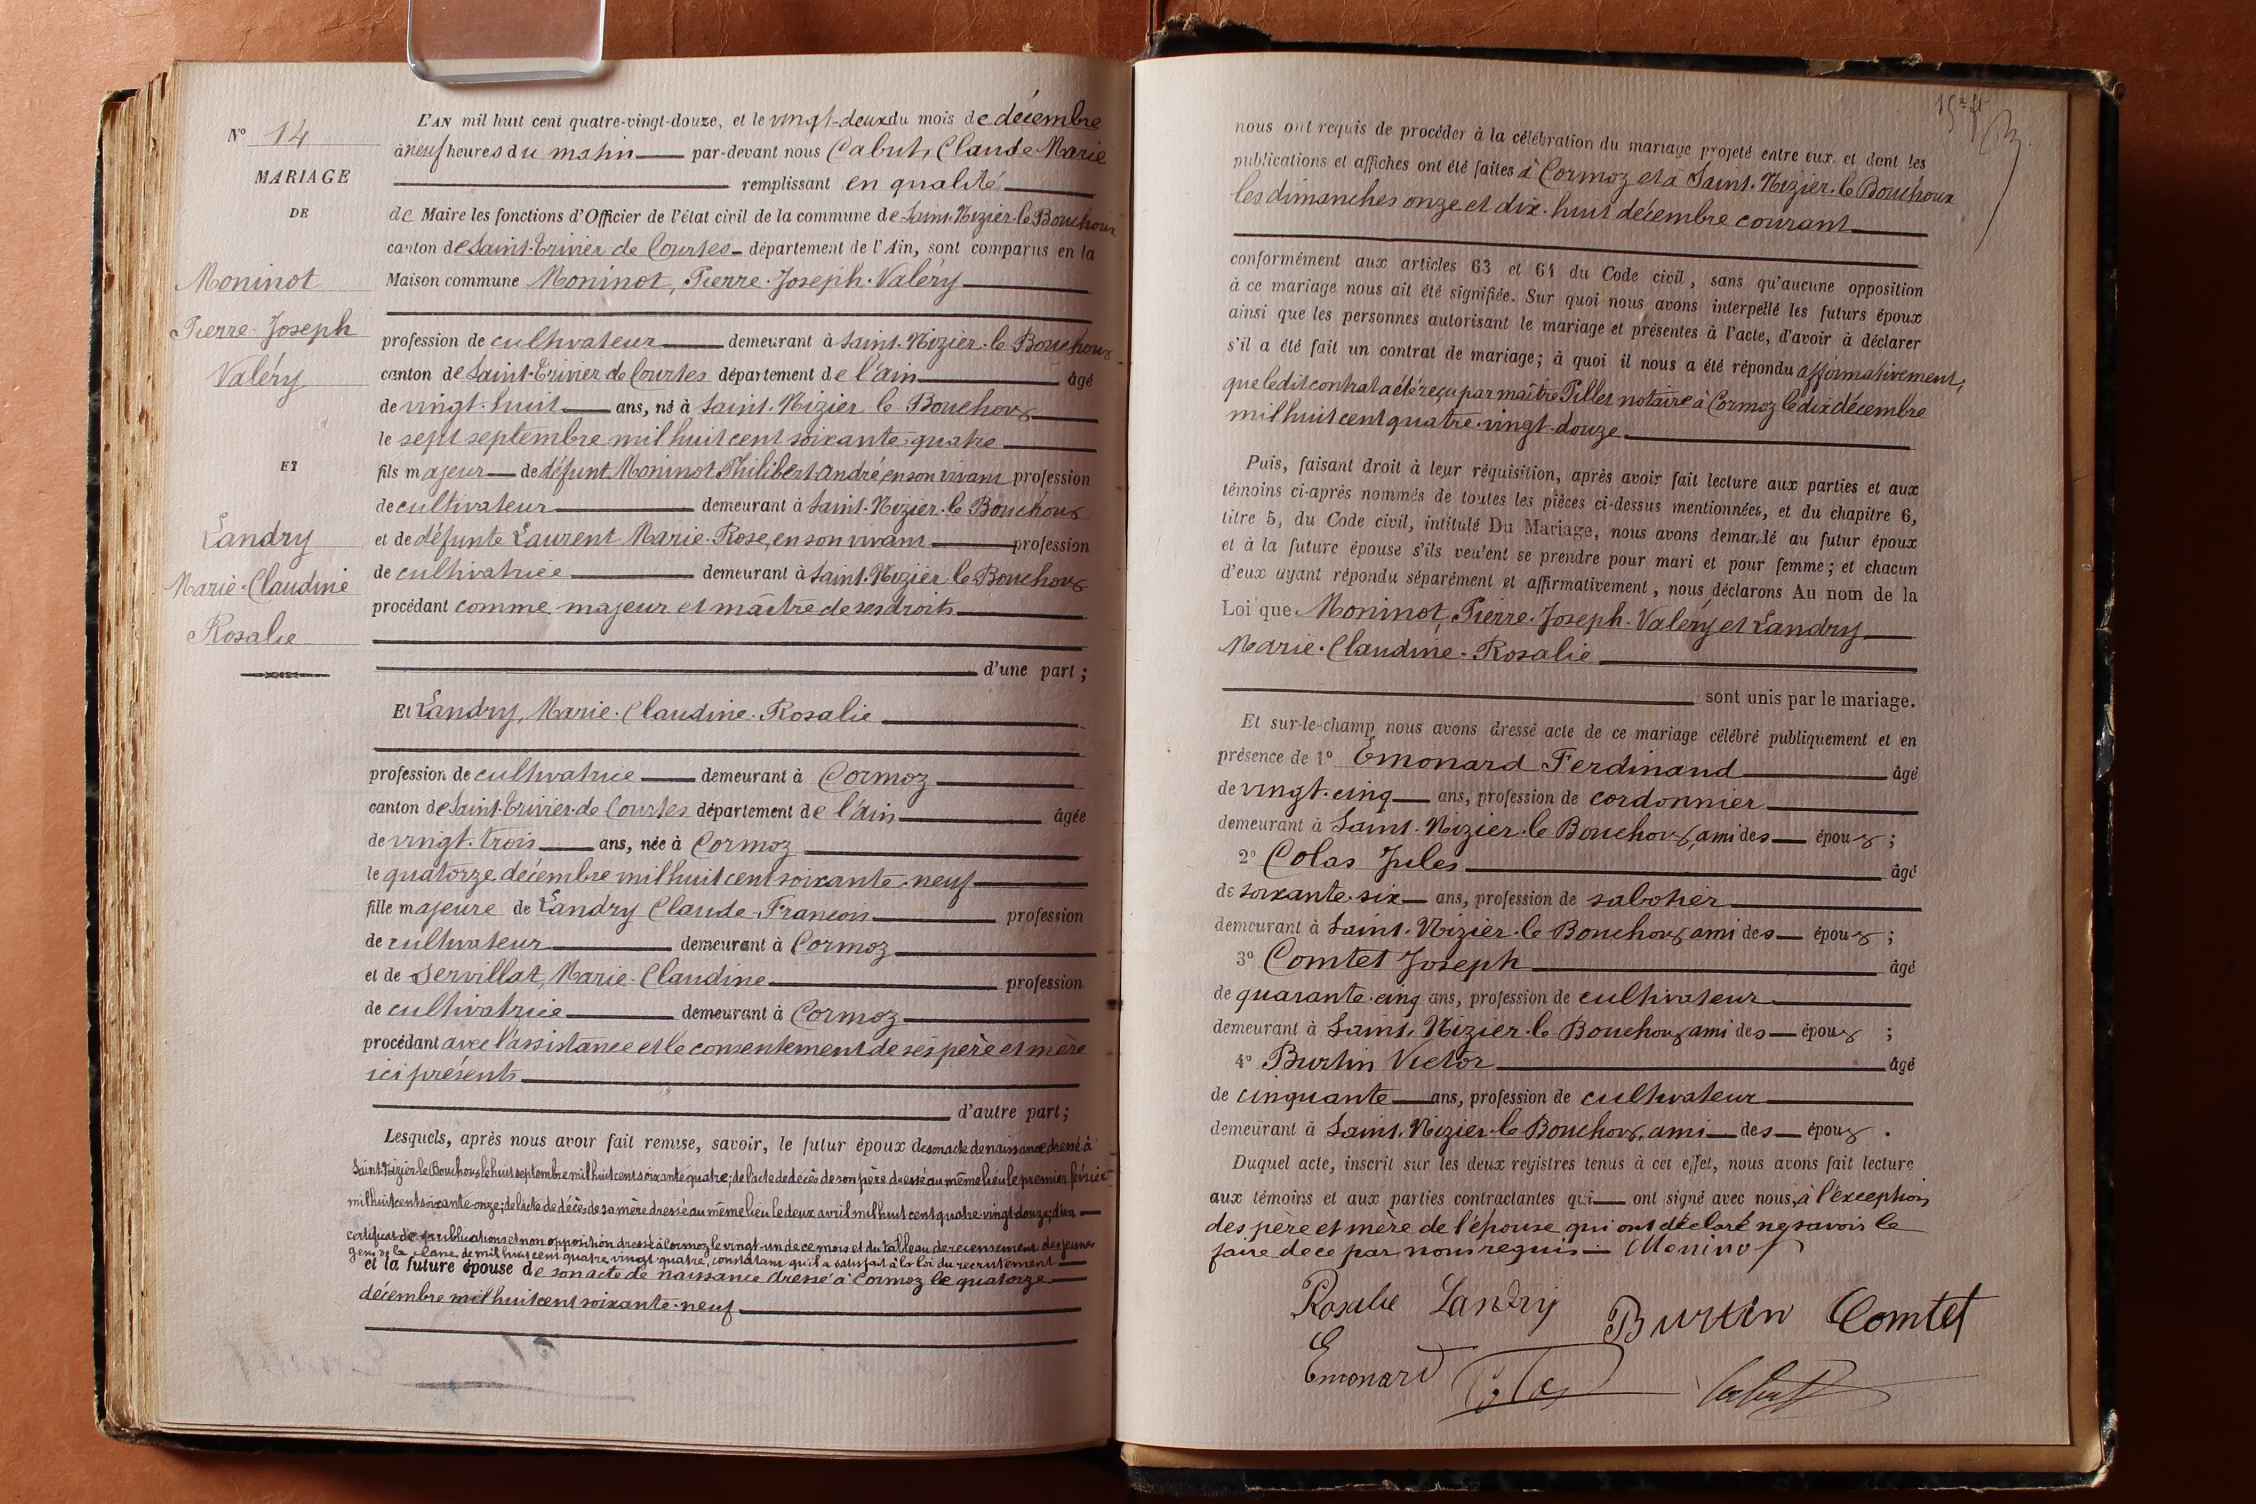 N° 14
MARIAGE
DE
Moninot
Pierre-Joseph
Valéry
ET
Landry
Marie-Claudine
Rosalie
L'AN mil huit cent quatre-vingt-douze, et le vingt-deux du mois de décembre
à neuf heures du matin par-devant nous Cabut, Claude-Marie
remplissant en qualité
de Maire les fonctions d'Officier de l'état civil de la commune de Saint-Nizier-le-Bouchoux
canton de Saint-Trivier de Courtes département de l'Ain, sont comparus en la
Maison commune Moninot, Pierre-Joseph-Valéry
profession de cultivateur demeurant à Saint-Nizier-le Bouchoux
canton de Saint-Trivier de Courtes département de l'ain âgé
de vingt-huit ans, né à Saint-Nizier le Bouchoux
le sept septembre mil huit cent soixante-quatre
fils majeur de défunt Moninot Philibert André, en son vivant profession
de cultivateur demeurant à Saint-Nizier-le Bouchoux
et de défunte Laurent Marie-Rose, en son vivant profession
de cultivatrice demeurant à Saint-Nizier le Bouchoux
procédant comme majeur et maître de ses droits
d'une part;
Et Landry, Marie-Claudine-Rosalie
profession de cultivatrice demeurant à Cormoz
canton de Saint-Trivier-de Courtes département de l'ain âgée
de vingt-trois ans, née à Cormoz
le quatorze décembre mil huit cent soixante-neuf
fille majeure de Landry Claude-François profession
de cultivateur demeurant à Cormoz
et de Servillat, Marie-Claudine profession
de cultivatrice demeurant à Cormoz
procédant avec l'assistance et le consentement de ses père et mère
ici présents
d'autre part;
Lesquels, après nous avoir fait remise, savoir, le futur époux de son acte de naissance dressé à
Saint-Nizier-le Bouchoux le huit septembre mil huit cent soixante quatre; de l'acte de décès de son père dressé au même lieu le premier février
mil huit cent soixante-onze; de l'acte de décès de sa mère dressé au même lieu le deux avril mil huit cent quatre-vingt-douze; d'un
certificat de publications et non opposition dressé à Cormoz le vingt-un de ce mois et du tableau de recensement des jeunes
gens de la classe de mil huit cent quatre vingt quatre, constatant qu'il a satisfait à la loi du recrutement
et la future épouse de son acte de naissance dressé à Cormoz le quatorze
décembre mil huit cent soixante-neuf
nous ont requis de procéder à la célébration du mariage projeté entre eux et dont les
publications et affiches ont été faites à Cormoz et à Saint-Nizier-le Bouchoux
les dimanches onze et dix-huit décembre courant
conformément aux articles 63 et 64 du Code civil, sans qu'aucune opposition
à ce mariage nous ait été signifiée. Sur quoi nous avons interpellé les futurs époux
ainsi que les personnes autorisant le mariage et présentes à l'acte, d'avoir à déclarer
s'il a été fait un contrat de mariage; à quoi il nous a été répondu affirmativement,
que le dit contrat a été reçu par maître Pillet notaire à Cormoz le dix décembre
mil huit cent quatre-vingt-douze
Puis, faisant droit à leur réquisition, après avoir fait lecture aux parties et aux
témoins ci-après nommés de toutes les pièces ci-dessus mentionnées, et du chapitre 6,
titre 5, du Code civil, intitulé Du Mariage, nous avons demandé au futur époux
et à la future épouse s'ils veulent se prendre pour mari et pour femme; et chacun
d'eux ayant répondu séparément et affirmativement, nous déclarons Au nom de la
Loi que Moninot, Pierre-Joseph-Valéry et Landry
Marie-Claudine-Rosalie
sont unis par le mariage.
Et sur-le-champ nous avons dressé acte de ce mariage célébré publiquement et en
présence de 1° Emonard Ferdinand âgé
de vingt-cinq ans, profession de cordonnier
demeurant à Saint-Nizier-le Bouchoux, ami des époux;
2° Colas Jules âgé
de soixante-six ans, profession de sabotier
demeurant à Saint-Nizier-le Bouchoux ami des époux;
3° Comtet Joseph âgé
de quarante-cinq ans, profession de cultivateur
demeurant à Saint-Nizier-le Bouchoux ami des époux;
4° Burtin Victor âgé
de cinquante ans, profession de cultivateur
demeurant à Saint-Nizier-le Bouchoux, ami des époux.
Duquel acte, inscrit sur les deux registres tenus à cet effet, nous avons fait lecture
aux témoins et aux parties contractantes qui ont signé avec nous, à l'exception
des père et mère de l'épouse qui ont déclaré ne savoir le
faire de ce par nous requis Moninot
Rosalie Landry Burtin Comtet
Emonard Colas Cabut